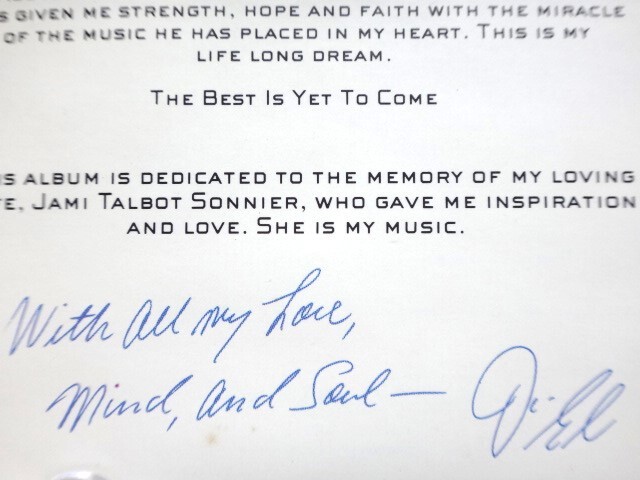 S GIVEN ME STRENGTH, HOPE AND FAITH WITH THE MIRACLE
OF THE MUSIC HE HAS PLACED IN MY HEART. THIS IS MY
LIFE LONG DREAM.
THE BEST IS YET TO COME
IS ALBUM IS DEDICATED TO THE MEMORY OF MY LOVING
FE, JAMI TALBOT SONNIER, WHO GAVE ME INSPIRATION
AND LOVE. SHE IS MY MUSIC.
With all my Love,
Mind, and Soul —